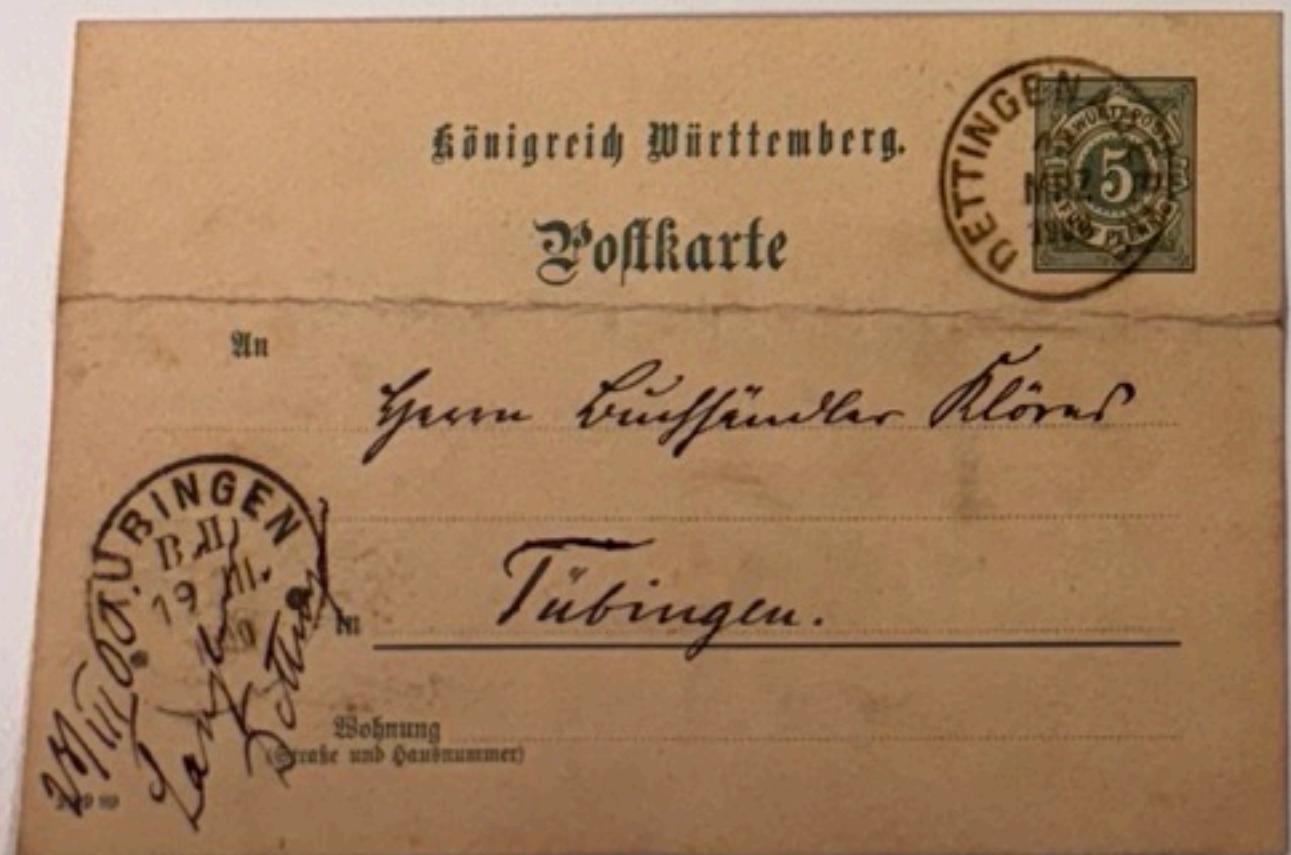 Königreich Württemberg.
Postkarte
DETTINGEN
MRZ
5
FÜNF PFENNIG
An
Herrn Buchhändler Klöres
TÜBINGEN
19 III.
in Tübingen.
Wohnung
(Straße und Hausnummer)